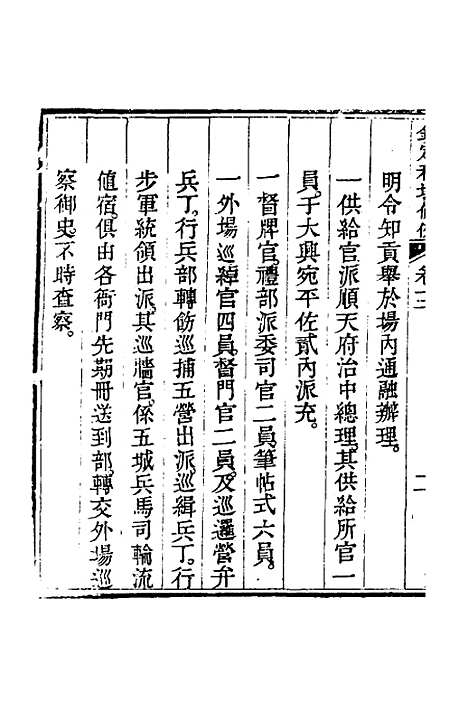 明令知貢舉於場內通融辦理。
一供給官派順天府治中總理其供給所官一
員于大興宛平佐貳內派充。
一督牌官禮部派委司官二員筆帖式六員。
一外場巡綽官四員督門官二員及巡邏營弁
兵丁行兵部轉飭巡捕五營出派巡緝兵丁行
步軍統領出派其巡牆官係五城兵馬司輪流
値宿俱由各衙門先期冊送到部轉交外場巡
察御史不時查察。